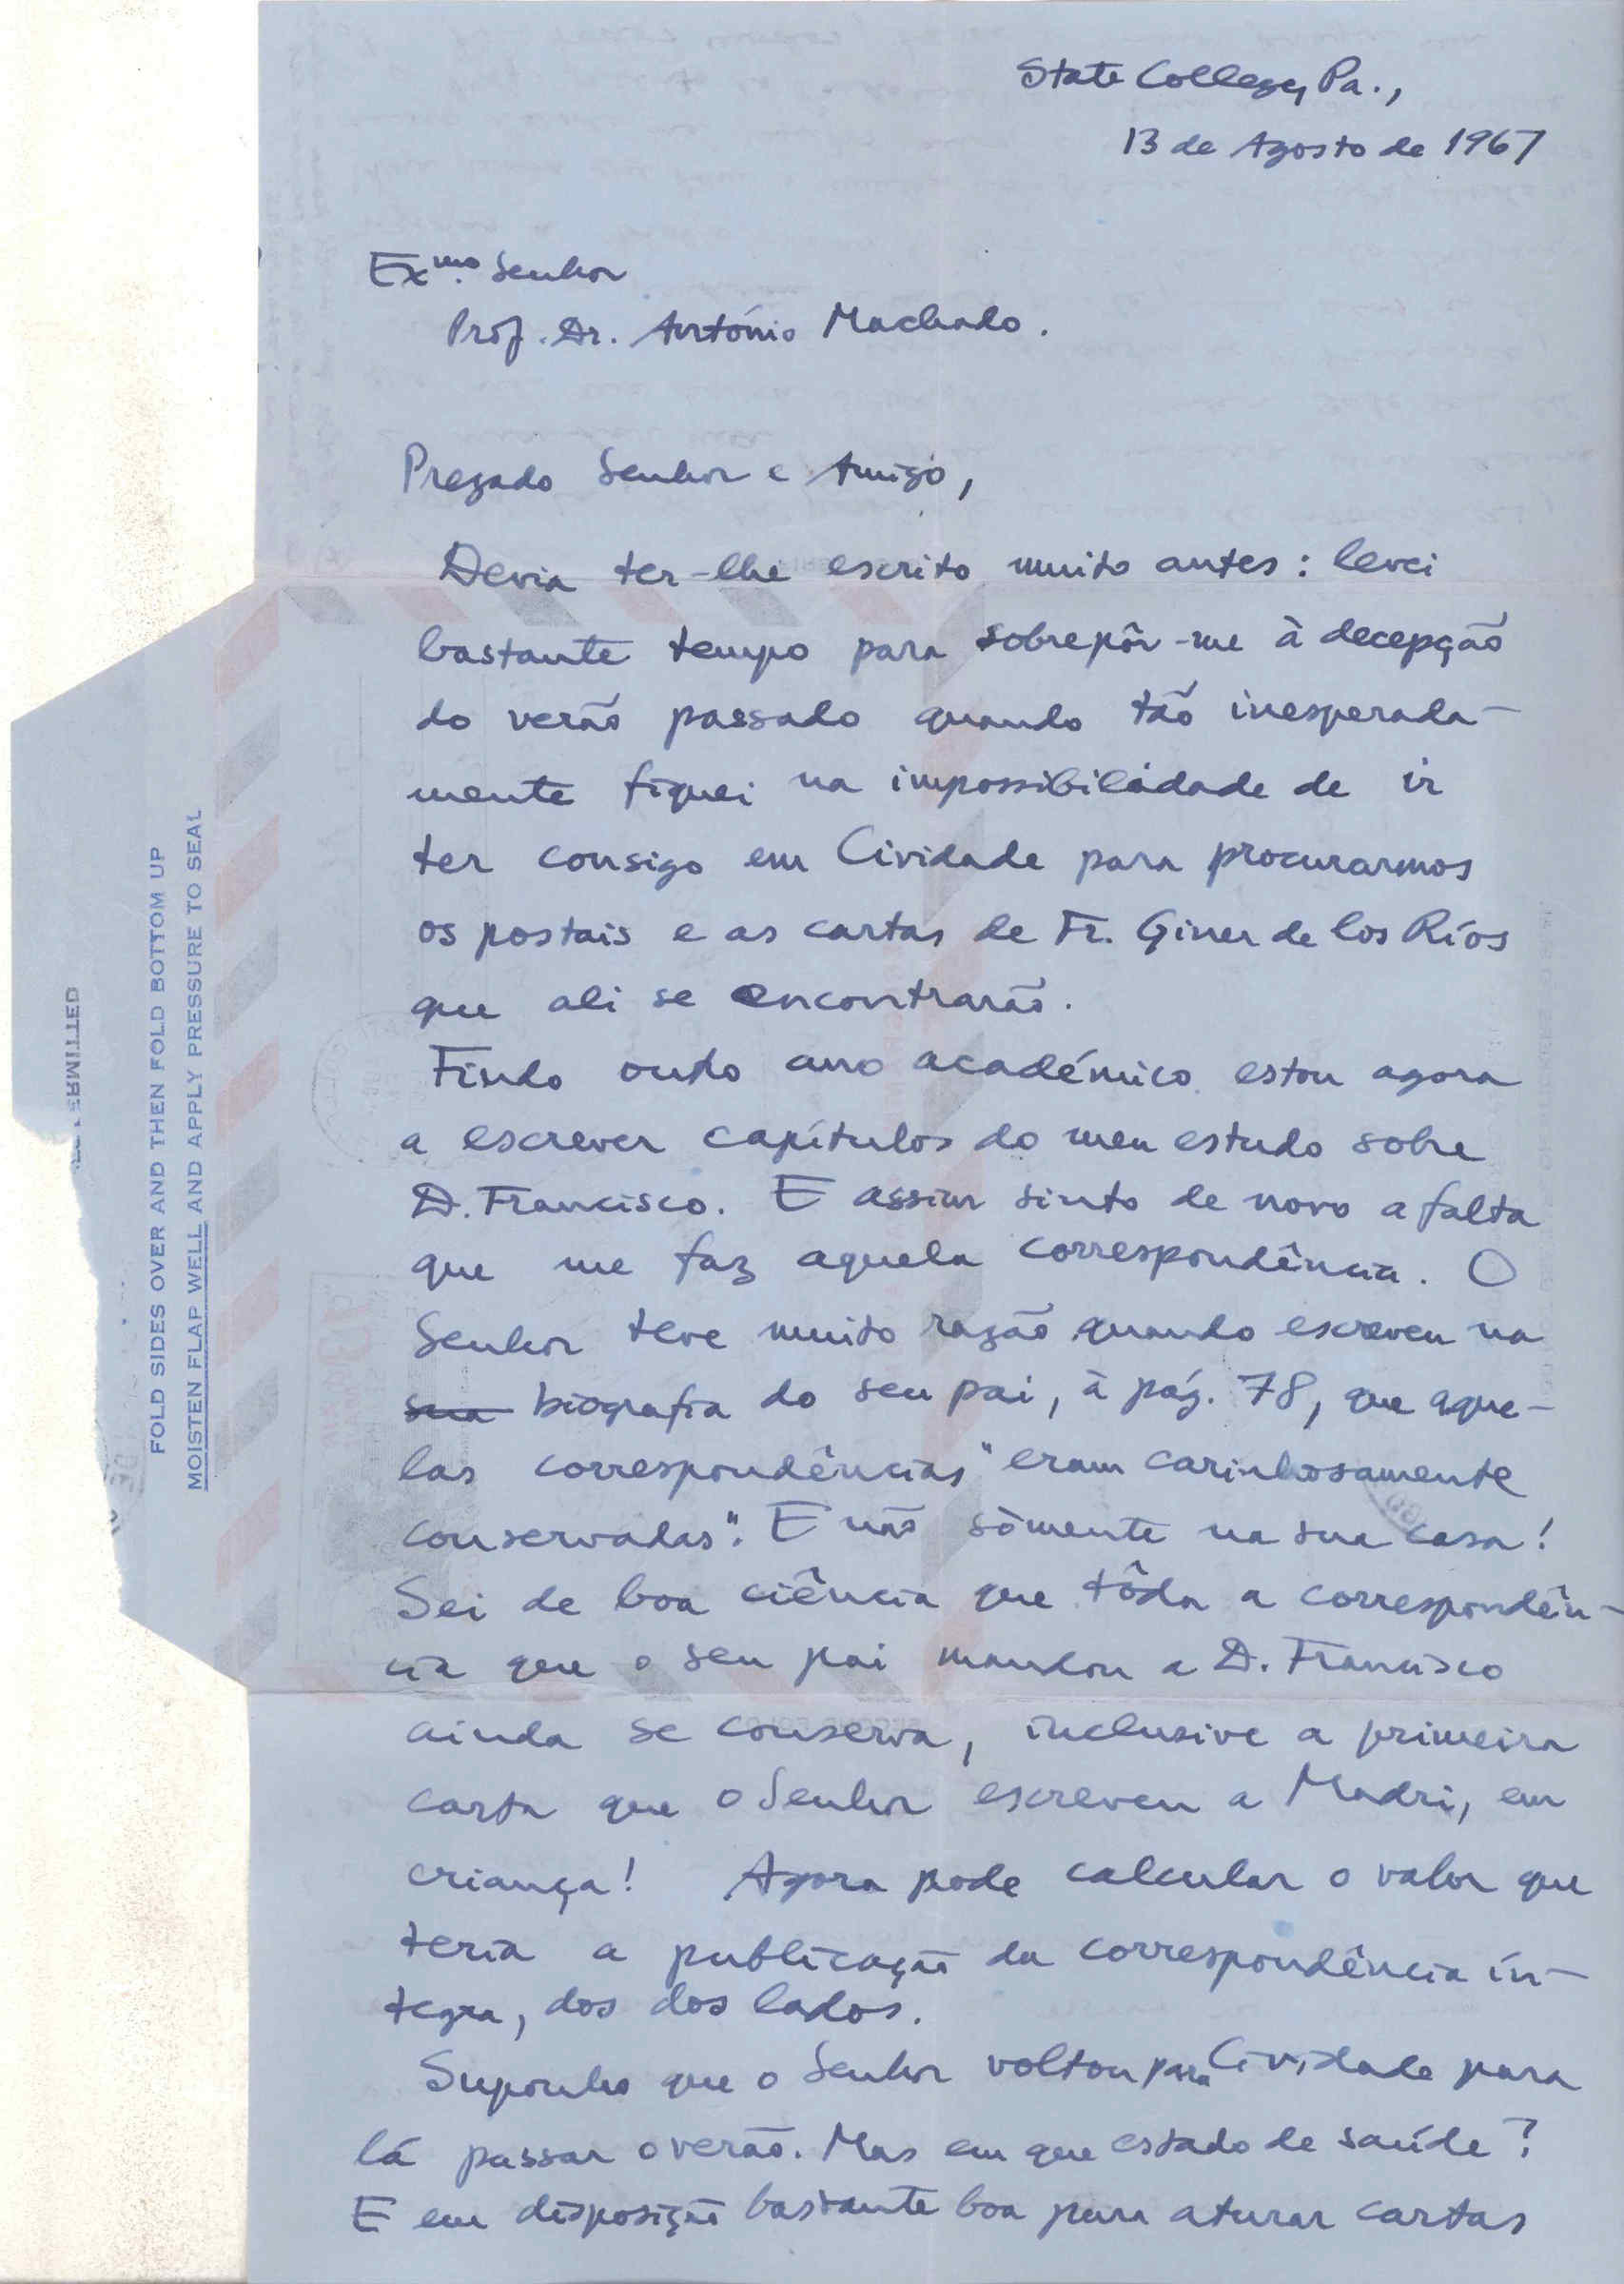 State College, Pa.,
13 de Agosto de 1967
Exmo. Senhor
Prof. Dr. António Machado.
Prezado Senhor e Amigo,
Devia ter-lhe escrito muito antes: levei
bastante tempo para sobrepôr-me à decepção
do verão passado quando tão inesperada-
mente fiquei na impossibilidade de ir
ter consigo em Cividade para procurarmos
os postais e as cartas de Fr. Giner de los Ríos
que ali se encontrarão.
Findo outro ano académico estou agora
a escrever capítulos do meu estudo sobre
D. Francisco. E assim sinto de novo a falta
que me faz aquela correspondência. O
Senhor teve muito razão quando escreveu na
sua biografia do seu pai, à pág. 78, que aque-
las correspondências "eram carinhosamente
conservadas". E não sòmente na sua casa!
Sei de boa ciência que tôda a correspondên-
cia que o seu pai mandou a D. Francisco
ainda se conserva, inclusive a primeira
carta que o Senhor escreveu a Madri, em
criança! Agora pode calcular o valor que
teria a publicação da correspondência ín-
tegra, dos dos lados.
Suponho que o Senhor voltou para Cividade para
lá passar o verão. Mas em que estado de saúde?
E em disposição bastante boa para aturar cartas
FOLD SIDES OVER AND THEN FOLD BOTTOM UP
MOISTEN FLAP WELL AND APPLY PRESSURE TO SEAL